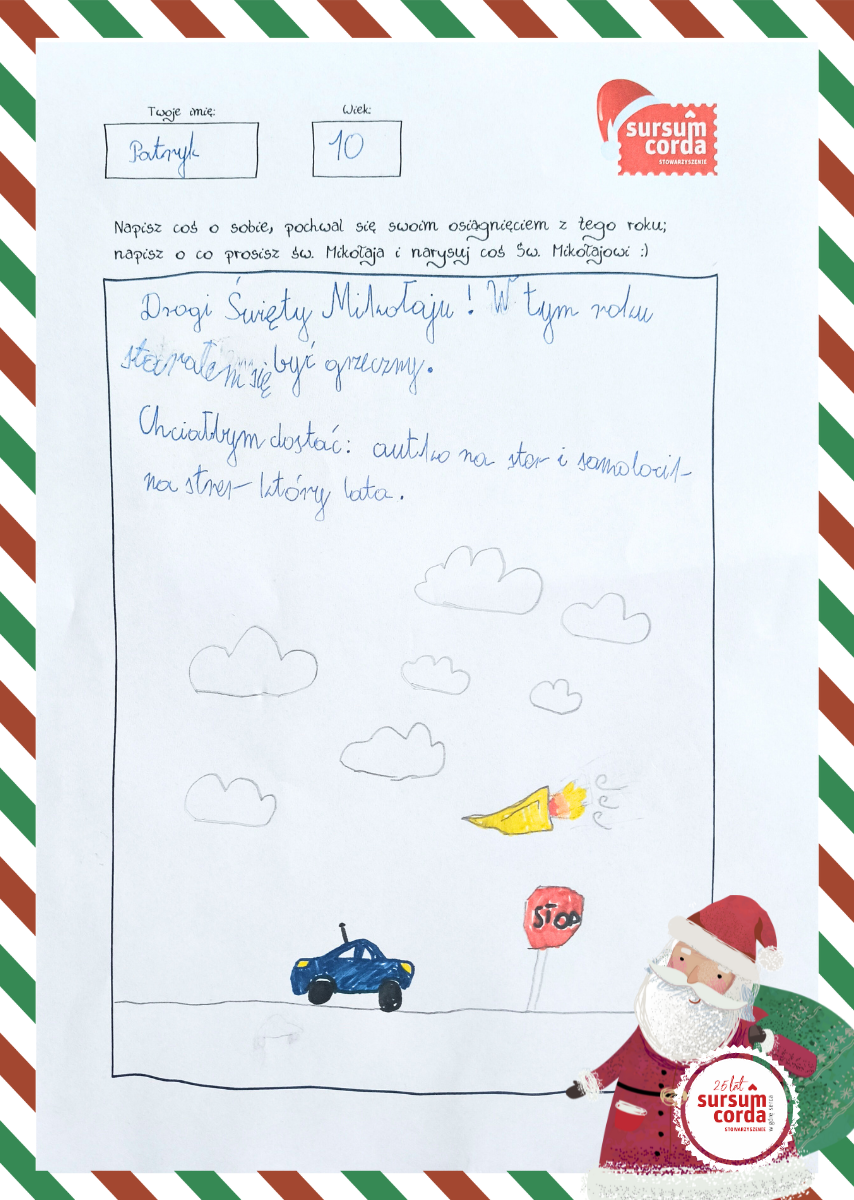 Twoje imię:
Wiek:
Patryk
10
sursum
corda
STOWARZYSZENIE
Napisz coś o sobie, pochwal się swoim osiągnięciem z tego roku;
napisz o co prosisz św. Mikołaja i narysuj coś Św. Mikołajowi :)
Drogi Święty Mikołaju! W tym roku
starałem się być grzeczny.
Chciałbym dostać: autko na ster i samolocik
na ster który lata.
STOP
25 lat
sursum
corda
STOWARZYSZENIE
w górę serca